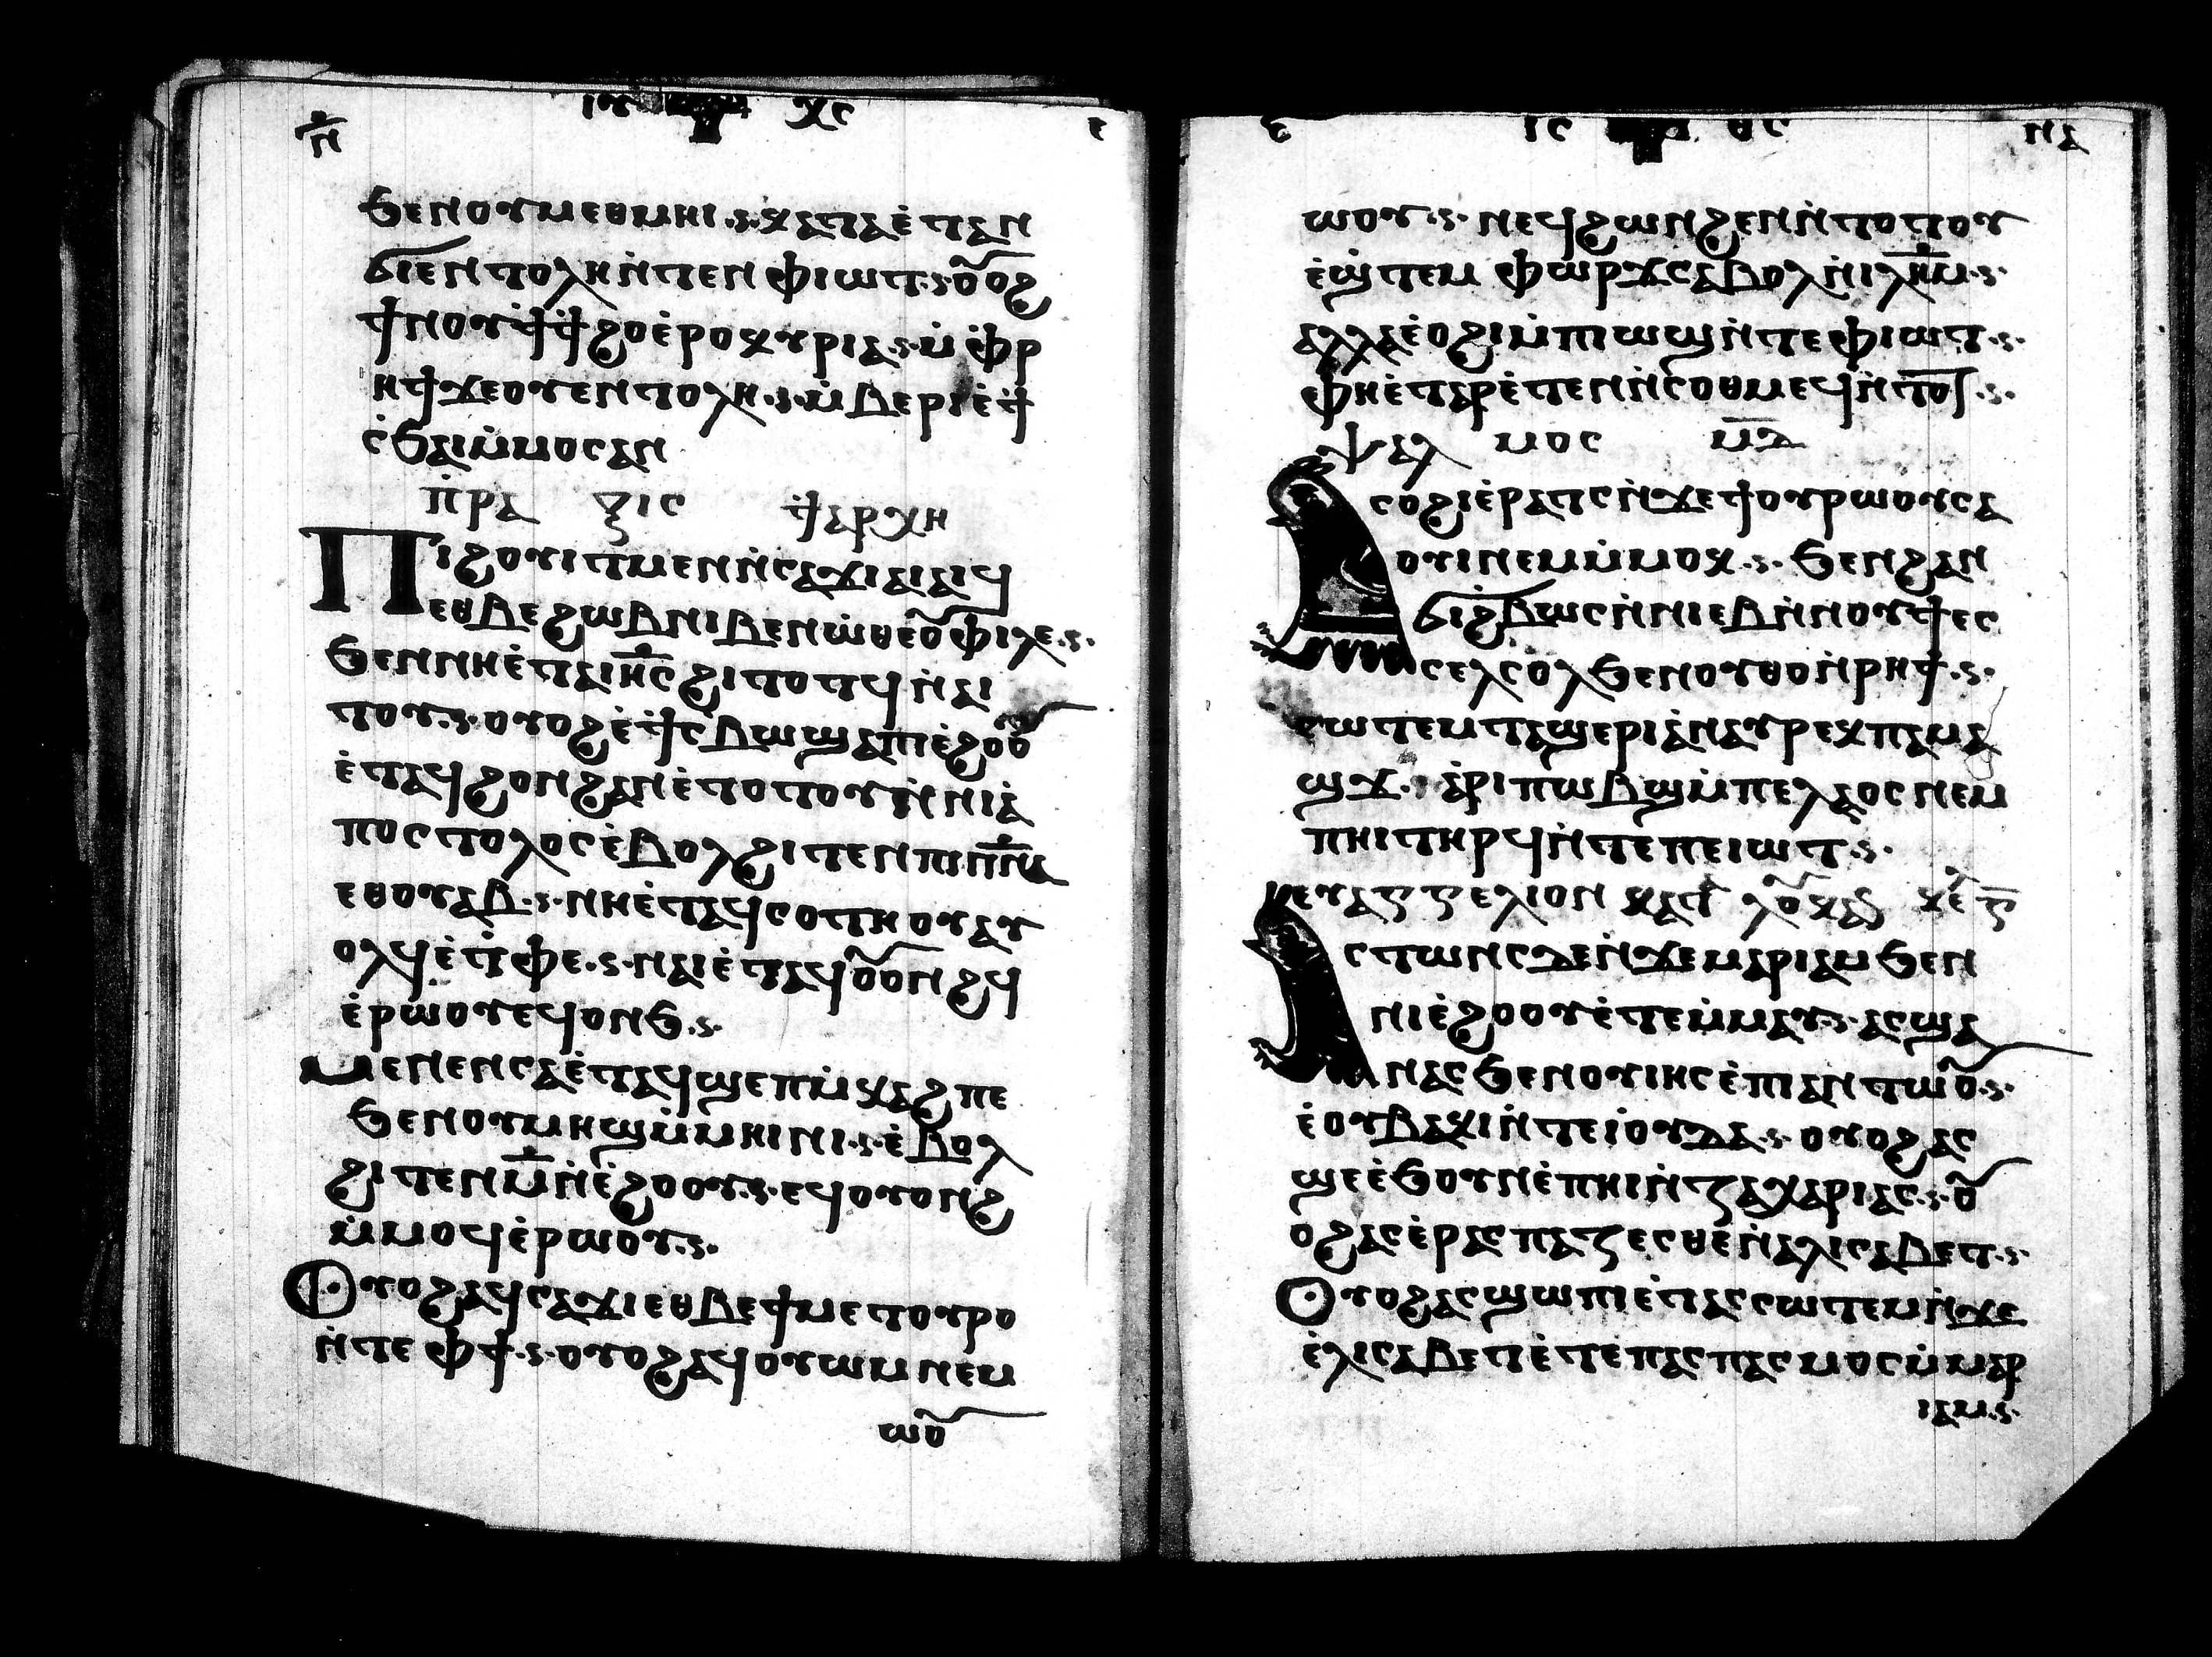 ⲛ̅ ⲓⲩ ⲭⲥ ⲉ
ϧⲉⲛⲟⲩⲙⲉⲑⲙⲏⲓ·ⲋ·ⲕⲁⲧⲁⲉ̀ⲧⲁⲛ
ϭⲓⲉⲛⲧⲟⲗⲏⲛ̀ⲧⲉⲛⲫⲓⲱⲧ·ⲋ·ⲟⲩ̅ⲟϩ
ϯⲛⲟⲩϯϯϩⲟⲉ̀ⲣⲟⲕⲩⲣⲓⲁ·ⲋ·ⲙ̀ⲫⲣ
ⲏϯϫⲉⲟⲩⲉⲛⲧⲟⲗⲏ·ⲋ·ⲙ̀ⲃⲉⲣⲓⲉ̀ϯ
ⲥ̀ϧⲁⲓⲙ̀ⲙⲟⲥⲁⲛ
ⲡ̀ⲣⲁ ⲝⲓⲥ ϯⲁⲣⲭⲏ
Ⲡⲓϩⲟⲩⲓⲧⲙⲉⲛⲛ̀ⲥⲁϫⲓⲁⲓⲁⲓϥ
ⲉⲑⲃⲉϩⲱⲃⲛⲓⲃⲉⲛⲱ̀ⲑⲉⲟ̅ⲫⲓⲗⲉ·ⲋ·
ϧⲉⲛⲛⲏⲉ̀ⲧⲁⲓⲏ̅ⲥϩⲓⲧⲟⲧϥⲛ̀ⲁⲓ
ⲧⲟⲩ·ⲋ·ⲟⲩⲟϩⲉ̀ϯⲥ̀ⲃⲱϣⲁⲡⲓⲉ̀ϩⲟⲟⲩ̅
ⲉ̀ⲧⲁϥϩⲟⲛϩⲁⲛⲉ̀ⲧⲟⲧⲟⲩⲛ̀ⲛⲓⲁ̀
ⲡⲟⲥⲧⲟⲗⲟⲥⲉ̀ⲃⲟⲗϩⲓⲧⲉⲛⲡⲓⲡⲛ̅ⲁ
ⲉⲑⲟⲩⲁⲃ·ⲋ·ⲛⲏⲉ̀ⲧⲁϥⲥⲟⲧⲡⲟⲩⲁⲩ
ⲟⲗϥⲉ̀ⲧ̀ⲫⲉ·ⲋ·ⲛⲁⲓⲉ̀ⲧⲁϥⲟⲩ̅ⲟⲛϩϥ
ⲉ̀ⲣⲱⲟⲩⲉϥⲟⲛϧ·ⲋ·
ⲙⲉⲛⲉⲛⲥⲁⲉ̀ⲧⲁϥϣⲉⲡⲙ̀ⲕⲁϩⲡⲉ
ϧⲉⲛⲟⲩⲙⲏϣⲙ̀ⲙⲏⲓⲛⲓ·ⲋ·ⲉ̀ⲃⲟⲗ
ϩⲓⲧⲉⲛⲙ̅ⲛ̀ⲉ̀ϩⲟⲟⲩ·ⲋ·ⲉϥⲟⲩⲟⲛϩ
ⲙ̀ⲙⲟϥⲉ̀ⲣⲱⲟⲩ·ⲋ·
Ⲟⲩⲟϩⲁϥⲥⲁϫⲓⲉⲑⲃⲉϯⲙⲉⲧⲟⲩⲣⲟ
ⲛ̀ⲧⲉⲫϯ·ⲋ·ⲟⲩⲟϩⲁϥⲟⲩⲱⲙⲛⲉⲙ
ⲱⲟⲩ̅
ⲉ ⲓⲥ ⲑⲥ ⲛⲁ
ⲱⲟⲩ·ⲋ·ⲛⲉϥϩⲱⲛϩⲉⲛⲛ̀ⲧⲟⲧⲟⲩ
ⲉ̀ϣ̀ⲧⲉⲙⲫⲱⲣϫⲥⲁⲃⲟⲗⲛ̀ⲓⲗⲏ̅ⲙ·ⲋ·
ⲁⲗⲗⲁⲉ̀ⲟϩⲓⲙ̀ⲡⲓⲱϣⲛ̀ⲧⲉⲫⲓⲱⲧ·ⲋ·
ⲫⲏⲉ̀ⲧⲁⲣⲉ̀ⲧⲉⲛⲛ̀ⲥⲟⲑⲙⲉϥⲛ̀ⲧⲟⲧ·ⲋ·
ⲯⲁⲗ ⲙⲟⲥ ⲙ̅ⲇ
Ⲁⲥⲟϩⲓⲉ̀ⲣⲁⲧⲥⲛ̀ϫⲉϯⲟⲩⲣⲱⲟⲩⲥⲁ
ⲟⲩⲓⲛⲉⲙⲙ̀ⲙⲟⲕ·ⲋ·ϧⲉⲛϩⲁⲛ
ϭⲓϩ̀ⲃⲱⲥⲛ̀ⲛⲓⲉⲃⲛ̀ⲛⲟⲩϯⲉⲥ
ⲥⲉⲗⲥⲟⲗϧⲉⲛⲟⲩⲑⲟⲛ̀ⲣⲏϯ·ⲋ·
ⲥⲱⲧⲉⲙⲧⲁϣⲉⲣⲓⲁ̀ⲛⲁⲩⲣⲉⲕⲡⲁⲙⲁ
ϣϫ· ⲁ̀ⲣⲓⲡⲱⲃϣⲙ̀ⲡⲉⲗⲁⲟⲥⲛⲉⲙ
ⲡⲏⲓⲧⲏⲣϥⲛ̀ⲧⲉⲡⲉⲓⲱⲧ·ⲋ·
ⲉⲩⲁⲅⲅⲉⲗⲓⲟⲛ ⲕⲁⲧ ⲗⲟⲩ̅ⲕⲁⲛ ⲕⲉ ⲅ̅
Ⲁⲥⲧⲱⲛⲥⲇⲉⲛ̀ϫⲉⲙⲁⲣⲓⲁⲙϧⲉⲛ
ⲛⲓⲉ̀ϩⲟⲟⲩⲉ̀ⲧⲉⲙ̀ⲙⲁⲩ·ⲋ·ⲁⲥϣⲁ
ⲛⲁⲥϧⲉⲛⲟⲩⲓⲏⲥⲉ̀ⲡⲓⲁⲛⲧⲱⲟⲩ̅·ⲋ·
ⲉ̀ⲟⲩⲃⲁⲕⲓⲛ̀ⲧⲉⲓ̀ⲟⲩⲇⲁ·ⲋ·ⲟⲩⲟϩⲁⲥ
ϣⲉⲉ̀ϧⲟⲩⲛⲉ̀ⲡⲏⲓⲛ̀ⲍⲁⲭⲁⲣⲓⲁⲥ·ⲋ·ⲟⲩ̅
ⲟϩⲁⲥⲉ̀ⲣⲁⲥⲡⲁⲍⲉⲥⲑⲉⲛ̀ⲁⲗⲓⲥⲁⲃⲉⲧ·ⲋ·
Ⲟⲩⲟϩⲁⲥϣⲱⲡⲓⲉ̀ⲧⲁⲥⲥⲱⲧⲉⲙⲛ̀ϫⲉ
ⲉ̀ⲗⲓⲥⲁⲃⲉⲧⲉ̀ⲧⲉⲡⲁⲥⲡⲁⲥⲙⲟⲥⲙ̀ⲙⲁⲣ
ⲓⲁⲙ·ⲋ·